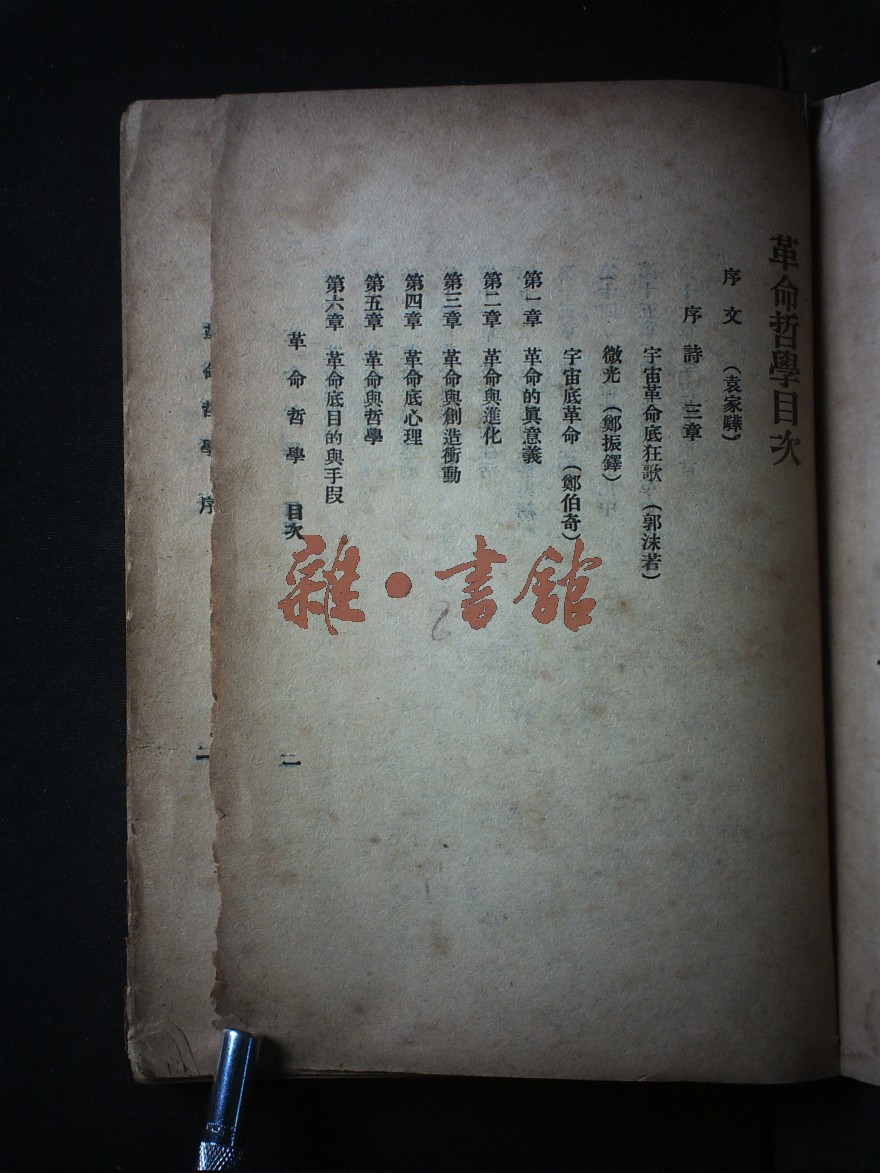 革命哲學目次
序文 (袁家驊)
序詩 三章
宇宙革命底狂歌 (郭沫若)
微光 (鄭振鐸)
宇宙底革命 (鄭伯奇)
第一章 革命的眞意義
第二章 革命與進化
第三章 革命與創造衝動
第四章 革命底心理
第五章 革命與哲學
第六章 革命底目的與手段
革命哲學 目次
二
革命哲學 序
二
雜·書舘